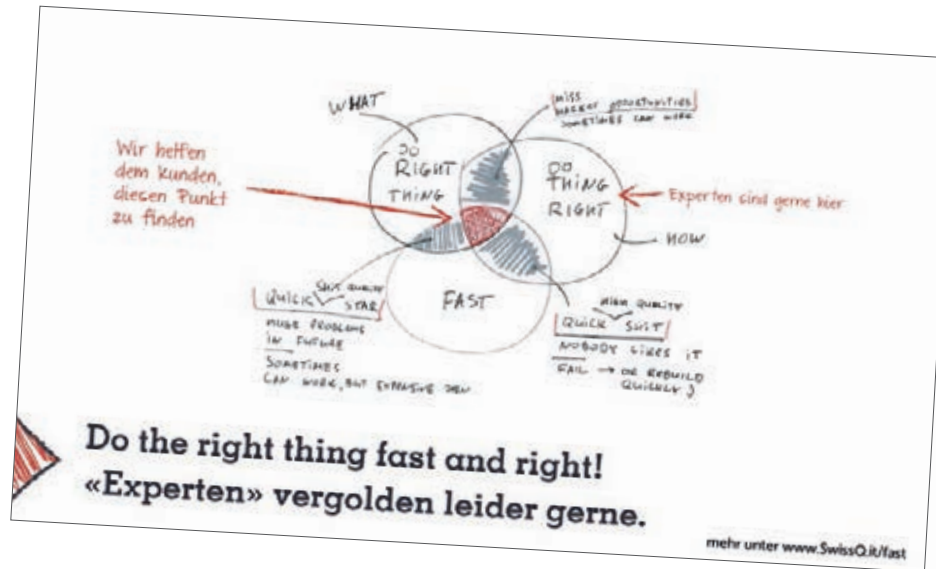 WHAT
MISS
MARKET OPPORTUNITIES
SOMETIMES CAN WORK
Wir helfen
dem Kunden,
diesen Punkt
zu finden
DO
RIGHT
THING
DO
THING
RIGHT
Experten sind gerne hier
HOW
FAST
SHIT QUALITY
QUICK STAR
HUGE PROBLEMS
IN FUTURE
SOMETIMES
CAN WORK, BUT EXPENSIVE
HIGH QUALITY
QUICK SHIT
NOBODY LIKES IT
FAIL → OR REBUILD
QUICKLY
Do the right thing fast and right!
«Experten» vergolden leider gerne.
mehr unter www.SwissQ.it/fast